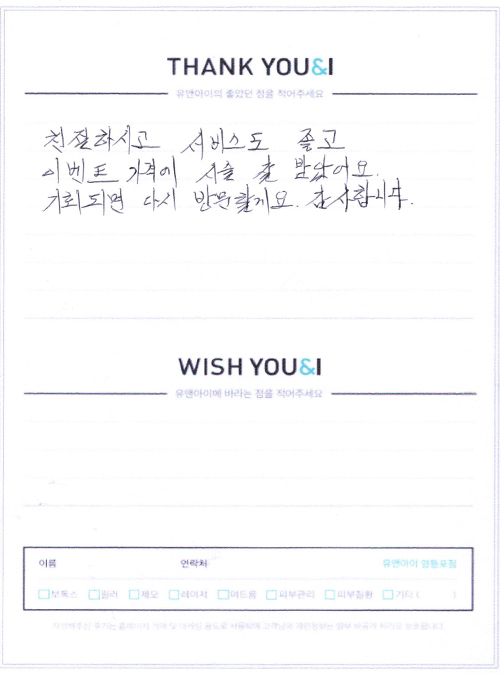 THANK YOU&I
유앤아이의 좋았던 점을 적어주세요
친절하시고 서비스도 좋고
이벤트 가격에 시술 잘 받았어요.
기회되면 다시 방문할게요. 감사합니다.
WISH YOU&I
유앤아이에 바라는 점을 적어주세요
이름 연락처 유앤아이 영등포점
보톡스 필러 제모 레이저 여드름 피부관리 피부질환 기타 ( )